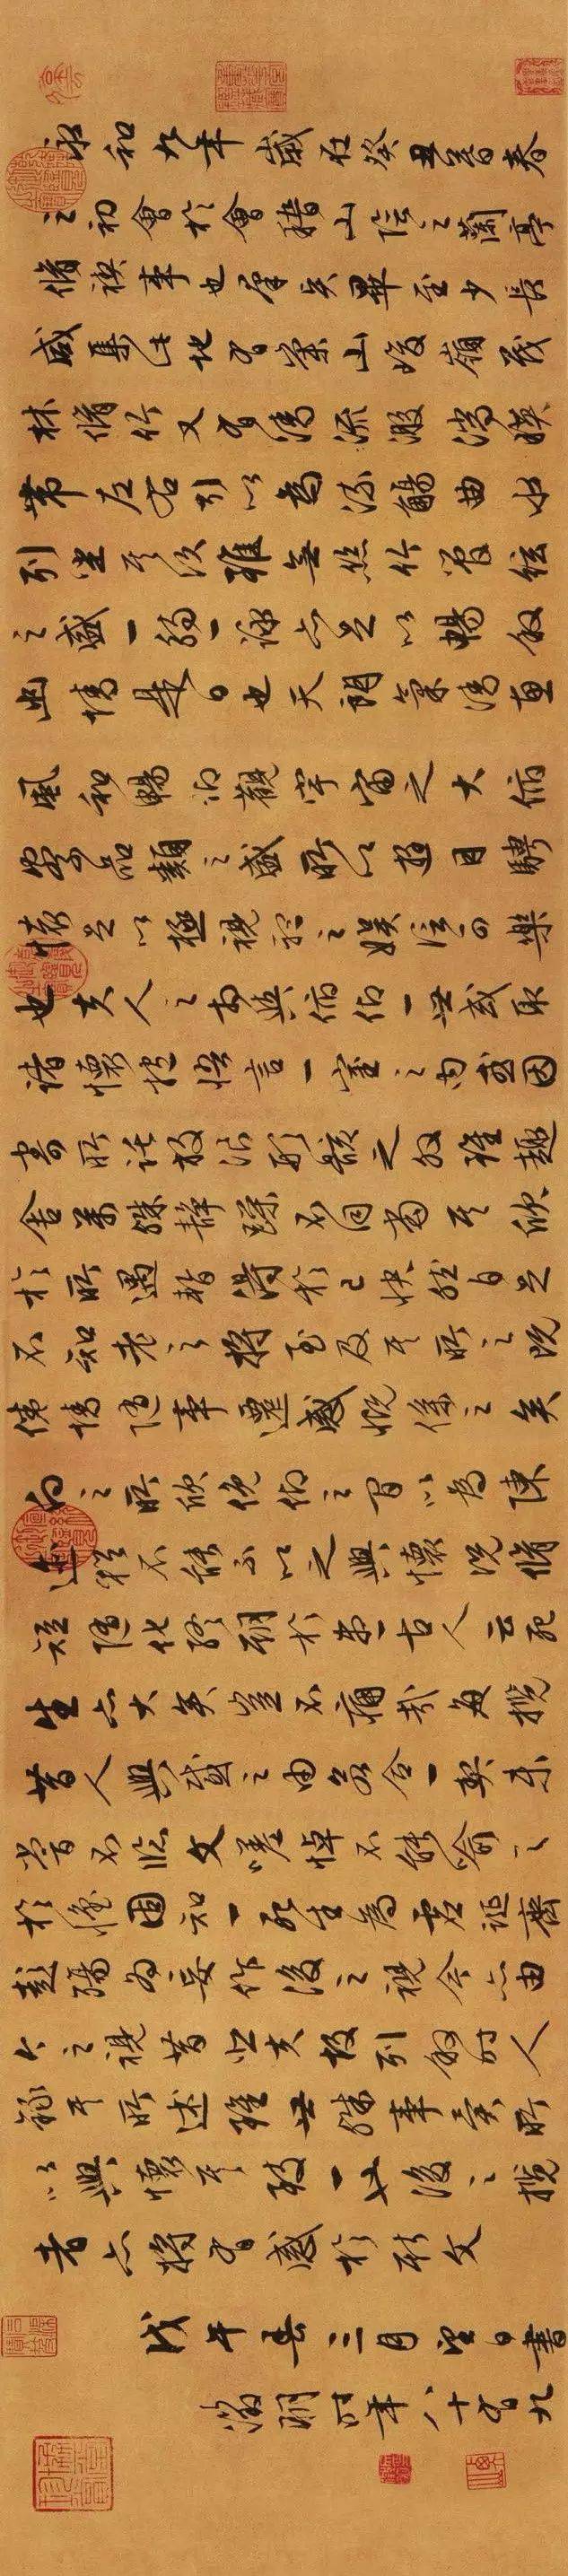 永和九年歲在癸丑暮春
之初會於會稽山陰之蘭亭
脩禊事也羣賢畢至少長
咸集此地有崇山峻嶺茂
林脩竹又有清流激湍暎
帶左右引以為流觴曲水
列坐其次雖無絲竹管絃
之盛一觴一詠亦足以暢敘
幽情是日也天朗氣清惠
風和暢仰觀宇宙之大俯
察品類之盛所以遊目騁
懷足以極視聽之娛信可樂
也夫人之相與俯仰一世或取
諸懷抱悟言一室之內或因
寄所託放浪形骸之外雖趣
舍萬殊靜躁不同當其欣
於所遇暫得於己快然自足
不知老之將至及其所之既
倦情隨事遷感慨係之矣
向之所欣俛仰之間以為陳
迹猶不能不以之興懷況脩
短隨化終期於盡古人云死
生亦大矣豈不痛哉每攬
昔人興感之由若合一契未
嘗不臨文嗟悼不能喻之
於懷固知一死生為虛誕齊
彭殤為妄作後之視今亦由
今之視昔悲夫故列敘時人
錄其所述雖世殊事異所
以興懷其致一也後之攬
者亦將有感於斯文
戊午春三月望日書
徵明時年八十有九